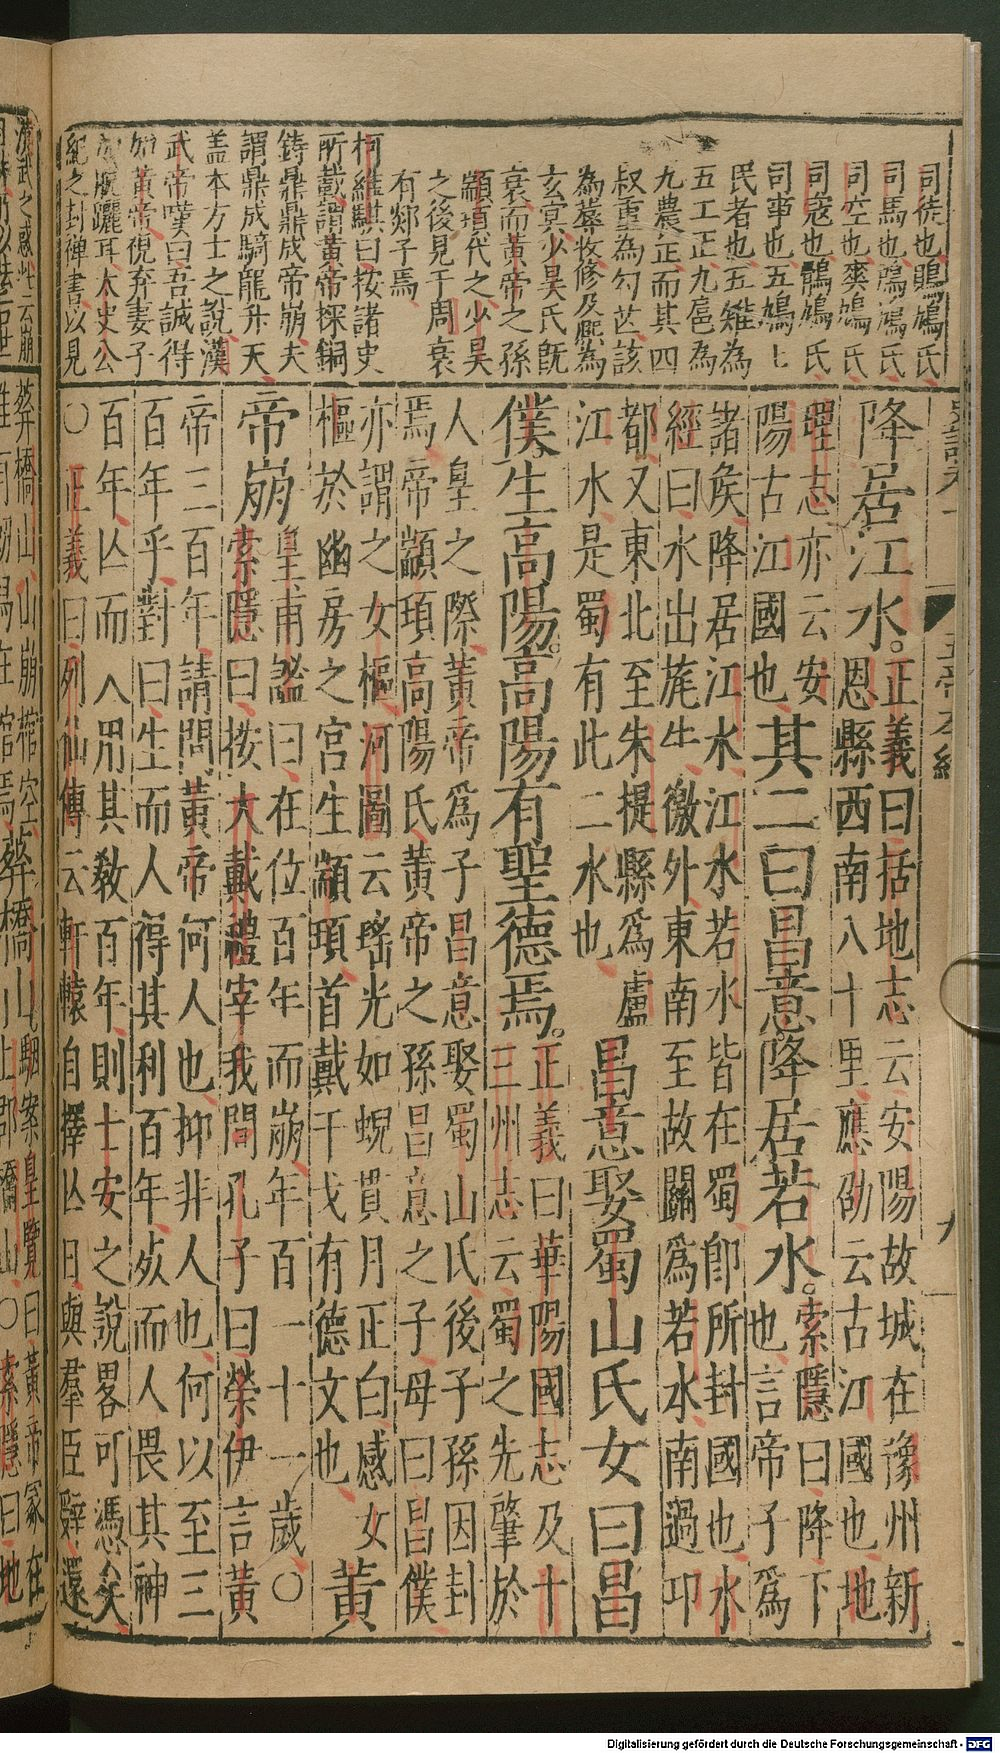 司徒也鴡鳩氏
司馬也鳲鳩氏
司空也爽鳩氏
司寇也鶻鳩氏
司事也五鳩七
民者也五雉為
五工正九扈為
九農正而其四
叔重為勾芒該
為蓐收修及熙為
玄冥少昊氏既
衰而黃帝之孫
顓頊代之少昊
之後見于周衰
有郯子焉
柯維騏曰按諸史
所載謂黃帝採銅
鑄鼎鼎成帝崩夫
謂鼎成騎龍升天
蓋本方士之說漢
武帝嘆曰吾誠得
如黃帝視弃妻子
如脫躧耳太史公
紀之封禪書以見
五帝本紀
九
降居江水。正義曰括地志云安陽故城在豫州新
恩縣西南八十里應劭云古江國也地
理志亦云安
陽古江國也其二曰昌意降居若水。索隱曰降下
也言帝子為
諸侯降居江水江水若水皆在蜀卽所封國也水
經曰水出旄牛徼外東南至故關為若水南過卭
都又東北至朱提縣為盧
江水是蜀有此二水也昌意娶蜀山氏女曰昌
僕生高陽。高陽有聖德焉。正義曰華陽國志及十
三州志云蜀之先肇於
人皇之際黃帝為子昌意娶蜀山氏後子孫因封
焉帝顓頊高陽氏黃帝之孫昌意之子母曰昌僕
亦謂之女樞河圖云瑤光如蜺貫月正白感女
樞於幽房之宮生顓頊首戴干戈有德文也黃
帝崩皇甫謐曰在位百年而崩年百一十一歲〇
索隱曰按大戴禮宰我問孔子曰榮伊言黃
帝三百年請問黃帝何人也抑非人也何以至三
百年乎對曰生而人得其利百年死而人畏其神
百年亾而人用其教百年則士安之說畧可憑矣
〇正義曰列仙傳云軒轅自擇亾日與羣臣辭還
漢武之惑此云崩
葬橋山山崩棺空
葬橋山駰案皇覽曰黃帝冢在
上郡橋山〇索隱曰地
Digitalisierung gefördert durch die Deutsche Forschungsgemeinschaft - DFG